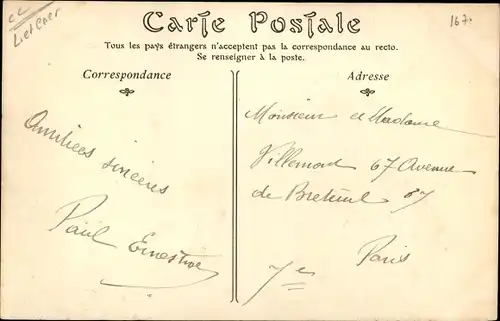 L et Cher
Carte Postale
167.
Tous les pays étrangers n'acceptent pas la correspondance au recto.
Se renseigner à la poste.
Correspondance
Amitiées sincères
Paul Ernestine
Adresse
Monsieur et Madame
Villemont 67 Avenue
de Breteuil 67
Paris
7e